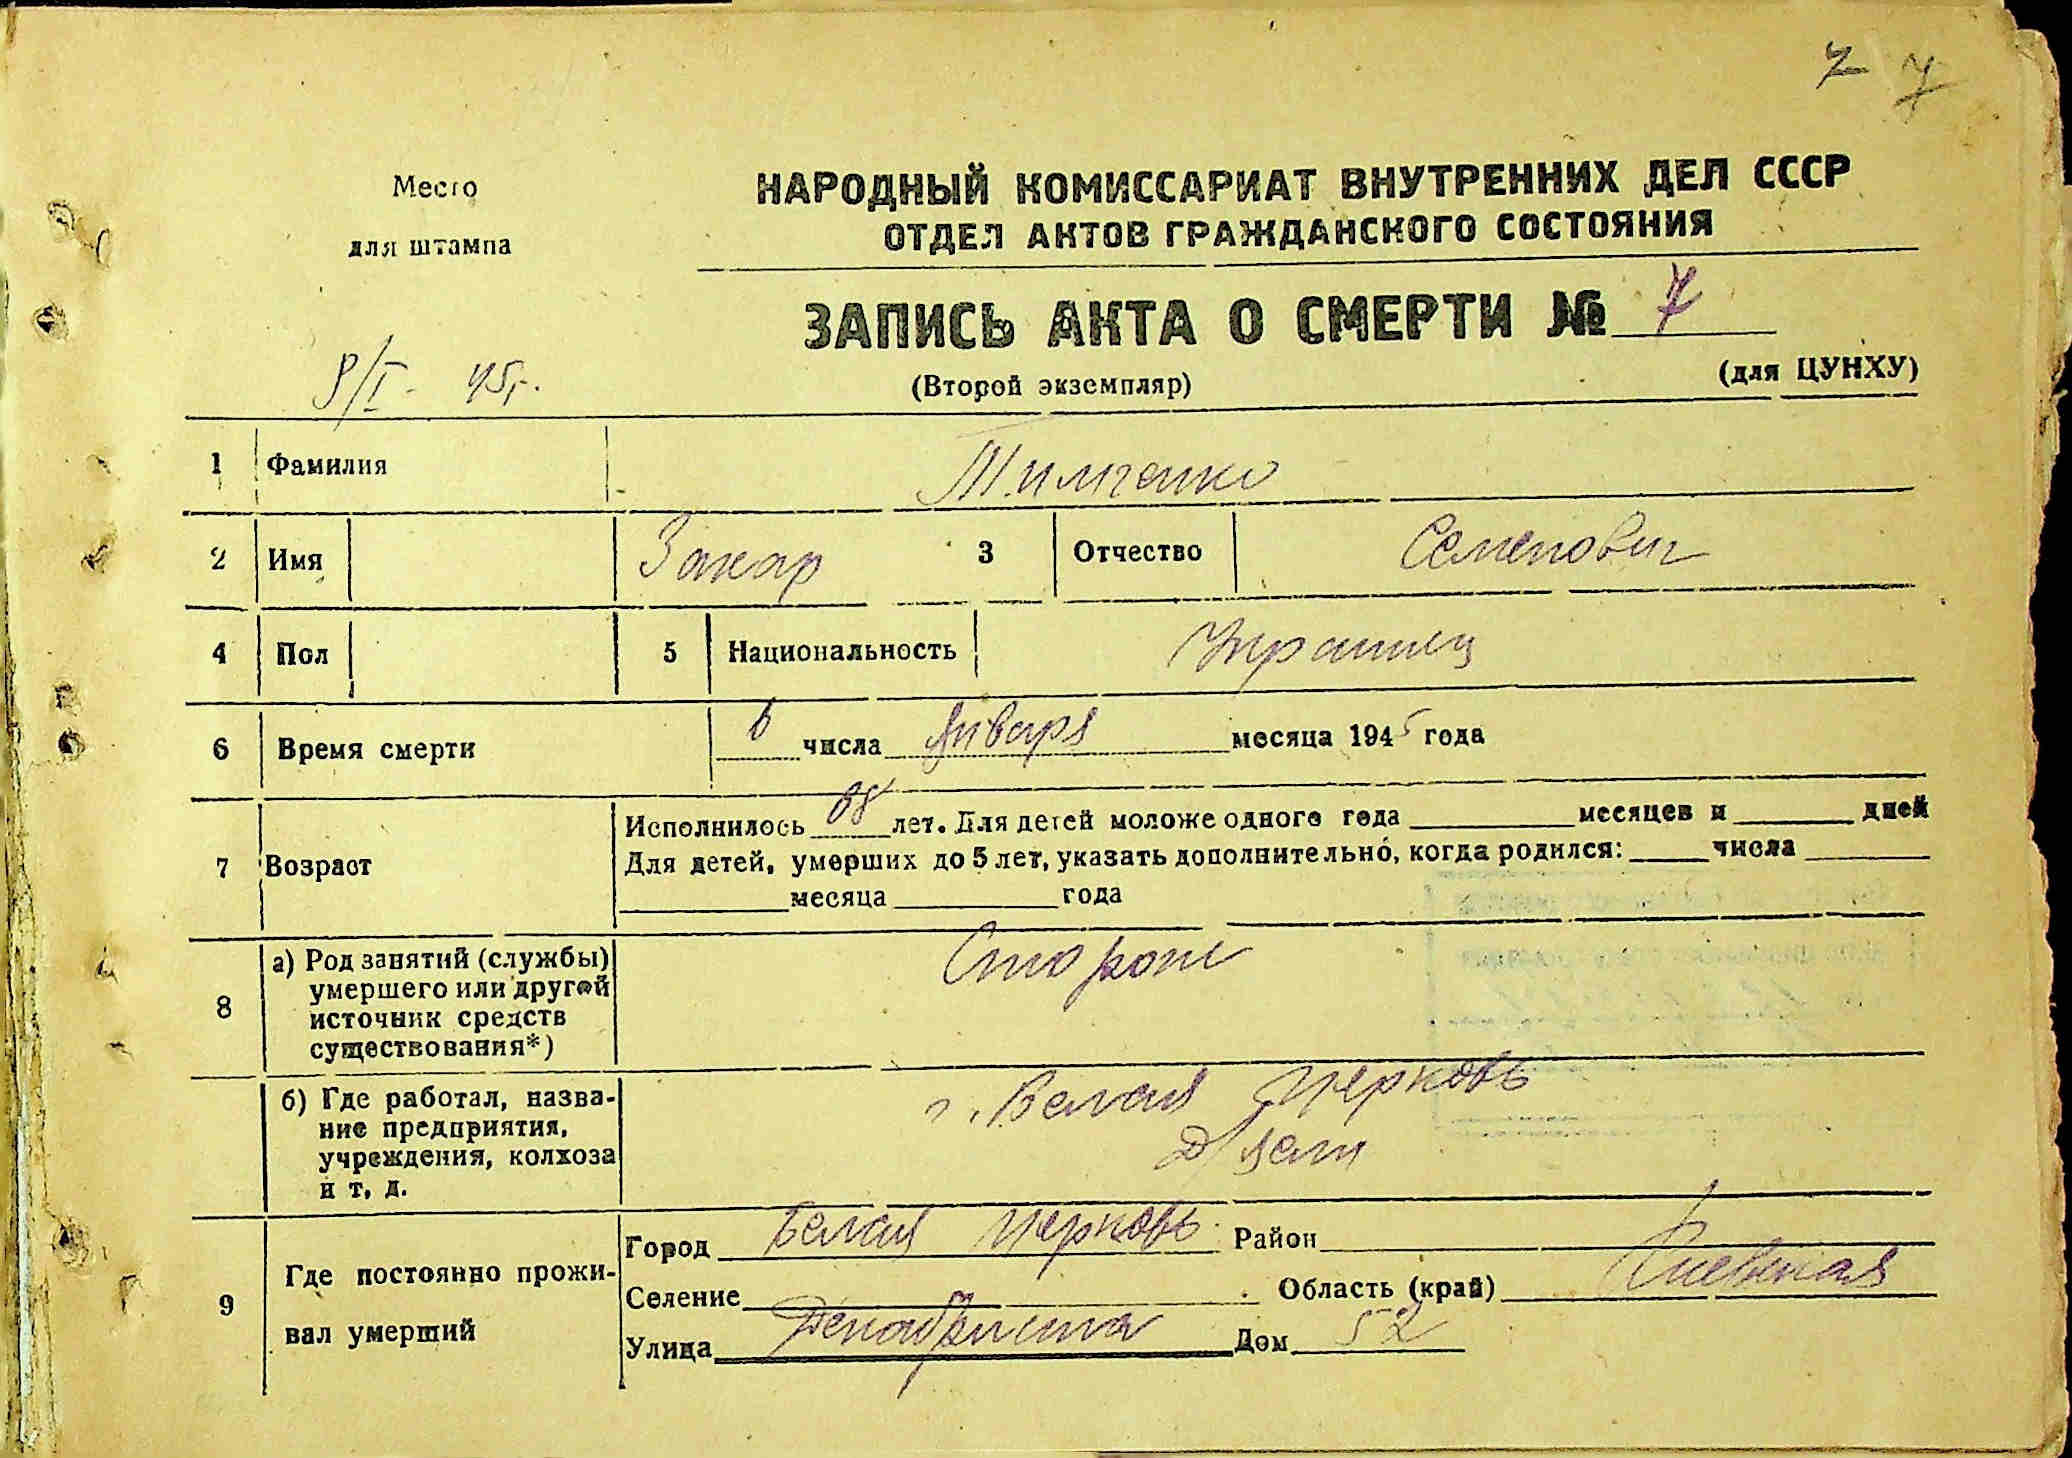 7 7
Место
для штампа
НАРОДНЫЙ КОМИССАРИАТ ВНУТРЕННИХ ДЕЛ СССР
ОТДЕЛ АКТОВ ГРАЖДАНСКОГО СОСТОЯНИЯ
ЗАПИСЬ АКТА О СМЕРТИ № 7
(Второй экземпляр)
(для ЦУНХУ)
9/I - 45г.
1 Фамилия Тимченко
2 Имя Захар 3 Отчество Семенович
4 Пол 5 Национальность Украинец
6 Время смерти 6 числа Января месяца 1945 года
7 Возраст
Исполнилось 68 лет. Для детей моложе одного года месяцев и дней
Для детей, умерших до 5 лет, указать дополнительно, когда родился: числа
месяца года
8 а) Род занятий (службы)
умершего или другой
источник средств
существования*)
Сторож
б) Где работал, назва-
ние предприятия,
учреждения, колхоза
и т. д.
г. Белая Церковь
Д/ясли
9 Где постоянно прожи-
вал умерший
Город Белая Церковь Район
Селение Область (край) Киевская
Улица Декабриста Дом 52